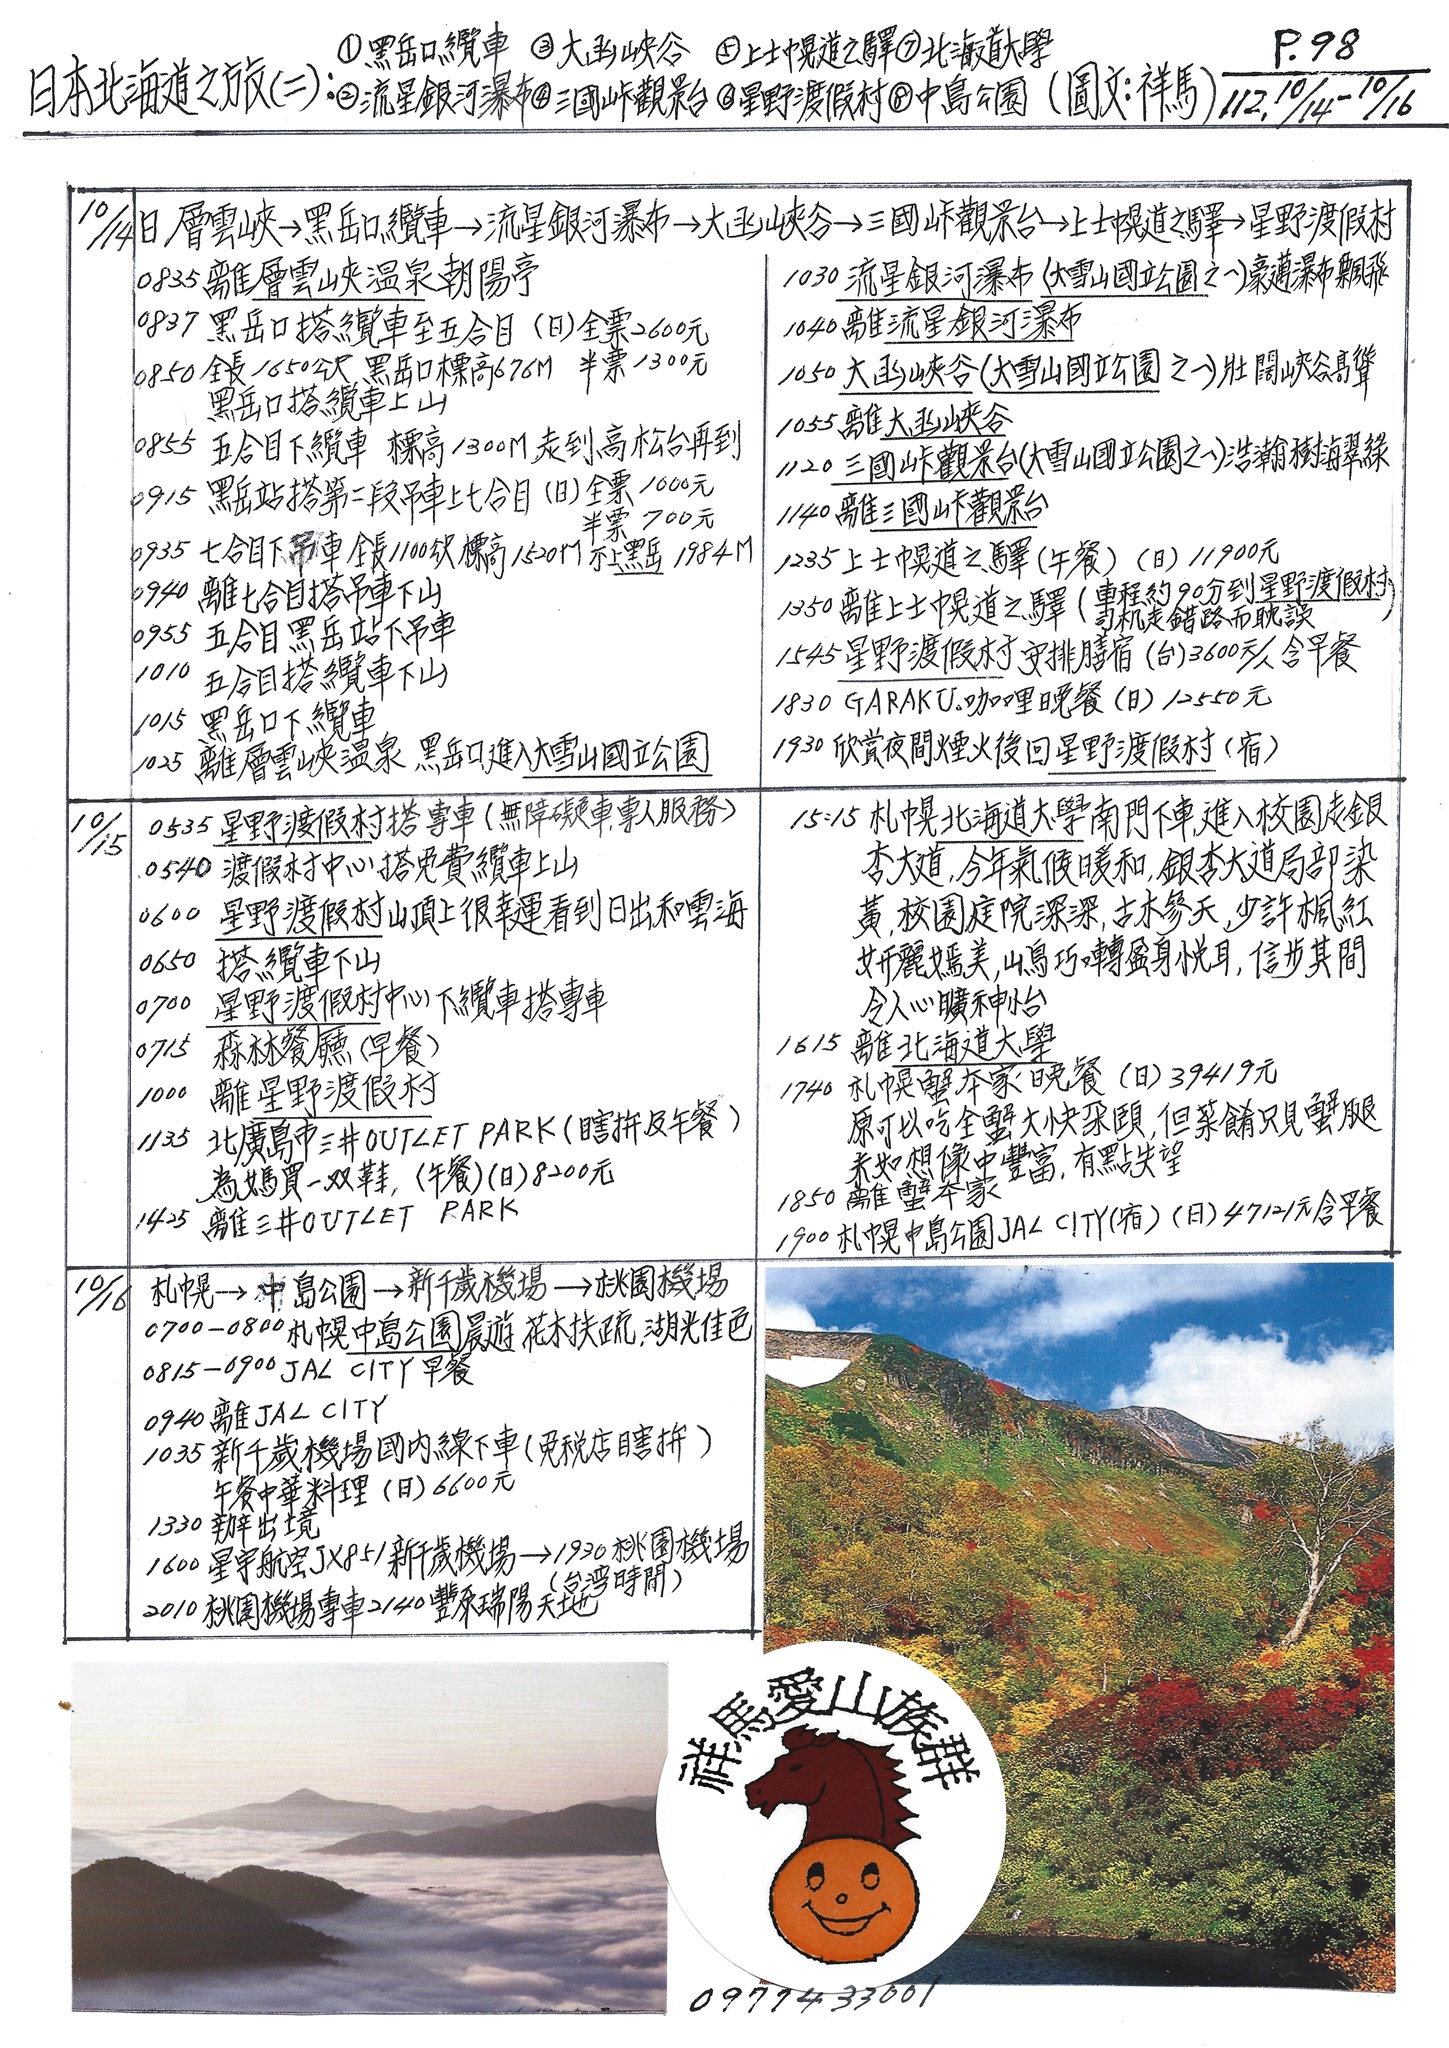 ①黑岳口纜車 ③大函峽谷 ⑤上士幌道之驛⑦北海道大學
P.98
日本北海道之旅(二):②流星銀河瀑布④三國峠觀景台⑥星野渡假村⑧中島公園(圖文:祥馬)112.10/14-10/16
10/14日 層雲峽→黑岳口纜車→流星銀河瀑布→大函峽谷→三國峠觀景台→上士幌道之驛→星野渡假村
0835 離層雲峽溫泉朝陽亭
0837 黑岳口搭纜車至五合目(日)全票2600元
0850 全長1650公尺 黑岳口標高676M 半票1300元
黑岳口搭纜車上山
0855 五合目下纜車 標高1300M,走到高松台再到
0915 黑岳站搭第二段吊車上七合目(日)全票1000元
半票 700元
0935 七合目下吊車 全長1100公尺標高1520M 不上黑岳1984M
0940 離七合目搭吊車下山
0955 五合目黑岳站下吊車
1010 五合目搭纜車下山
1015 黑岳口下纜車
1025 離層雲峽溫泉 黑岳口,進入大雪山國立公園
1030 流星銀河瀑布(大雪山國立公園之一)豪邁瀑布飄飛
1040 離流星銀河瀑布
1050 大函峽谷(大雪山國立公園之一)壯闊峽谷高聳
1055 離大函峽谷
1120 三國峠觀景台(大雪山國立公園之一)浩瀚樹海翠綠
1140 離三國峠觀景台
1235 上士幌道之驛(午餐)(日)11900元
1350 離上士幌道之驛(車程約90分到星野渡假村
司机走錯路而耽誤)
1545 星野渡假村 安排膳宿(台)3600元/人含早餐
1830 GARAKU.咖哩晚餐(日)12550元
1930 欣賞夜間煙火後回星野渡假村(宿)
10/15
0535 星野渡假村搭專車(無障礙車,專人服務)
0540 渡假村中心搭免費纜車上山
0600 星野渡假村山頂上很幸運看到日出和雲海
0650 搭纜車下山
0700 星野渡假村中心下纜車搭專車
0715 森林餐廳(早餐)
1000 離星野渡假村
1135 北廣島市三井OUTLET PARK(瞎拚及午餐)
為媽買一双鞋,(午餐)(日)8200元
1425 離三井OUTLET PARK
15:15 札幌北海道大學南門下車,進入校園走銀
杏大道,今年氣候暖和,銀杏大道局部染
黃,校園庭院深深,古木參天,少許楓紅
妍麗嫣美,山鳥巧囀盈身悅耳,信步其間
令人心曠神怡
1615 離北海道大學
1740 札幌蟹本家晚餐(日)39419元
原可以吃全蟹大快朵頤,但菜餚只見蟹腿
未如想像中豐富,有點失望
1850 離蟹本家
1900 札幌中島公園JAL CITY(宿)(日)47121元含早餐
10/16
札幌→中島公園→新千歲機場→桃園機場
0700-0800 札幌中島公園晨遊,花木扶疏,湖光佳色
0815-0900 JAL CITY早餐
0940 離JAL CITY
1035 新千歲機場國内線下車(免税店瞎拚)
午餐中華料理(日)6600元
1330 辦出境
1600 星宇航空JX851新千歲機場→1930桃園機場
(台湾時間)
2010 桃園機場專車2140豐原瑞陽天地
祥馬愛山族群
0977433001